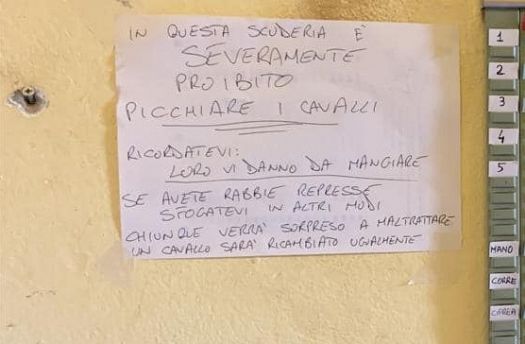 IN QUESTA SCUDERIA È
SEVERAMENTE
PROIBITO
PICCHIARE I CAVALLI
RICORDATEVI:
LORO VI DANNO DA MANGIARE
SE AVETE RABBIE REPRESSE
SFOGATEVI IN ALTRI MODI
CHIUNQUE VERRÀ SORPRESO A MALTRATTARE
UN CAVALLO SARÀ RICAMBIATO UGUALMENTE
1
2
3
4
5
MANO
CORRE